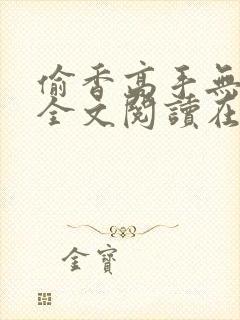 偷香高手無
全文閱讀在
金寶